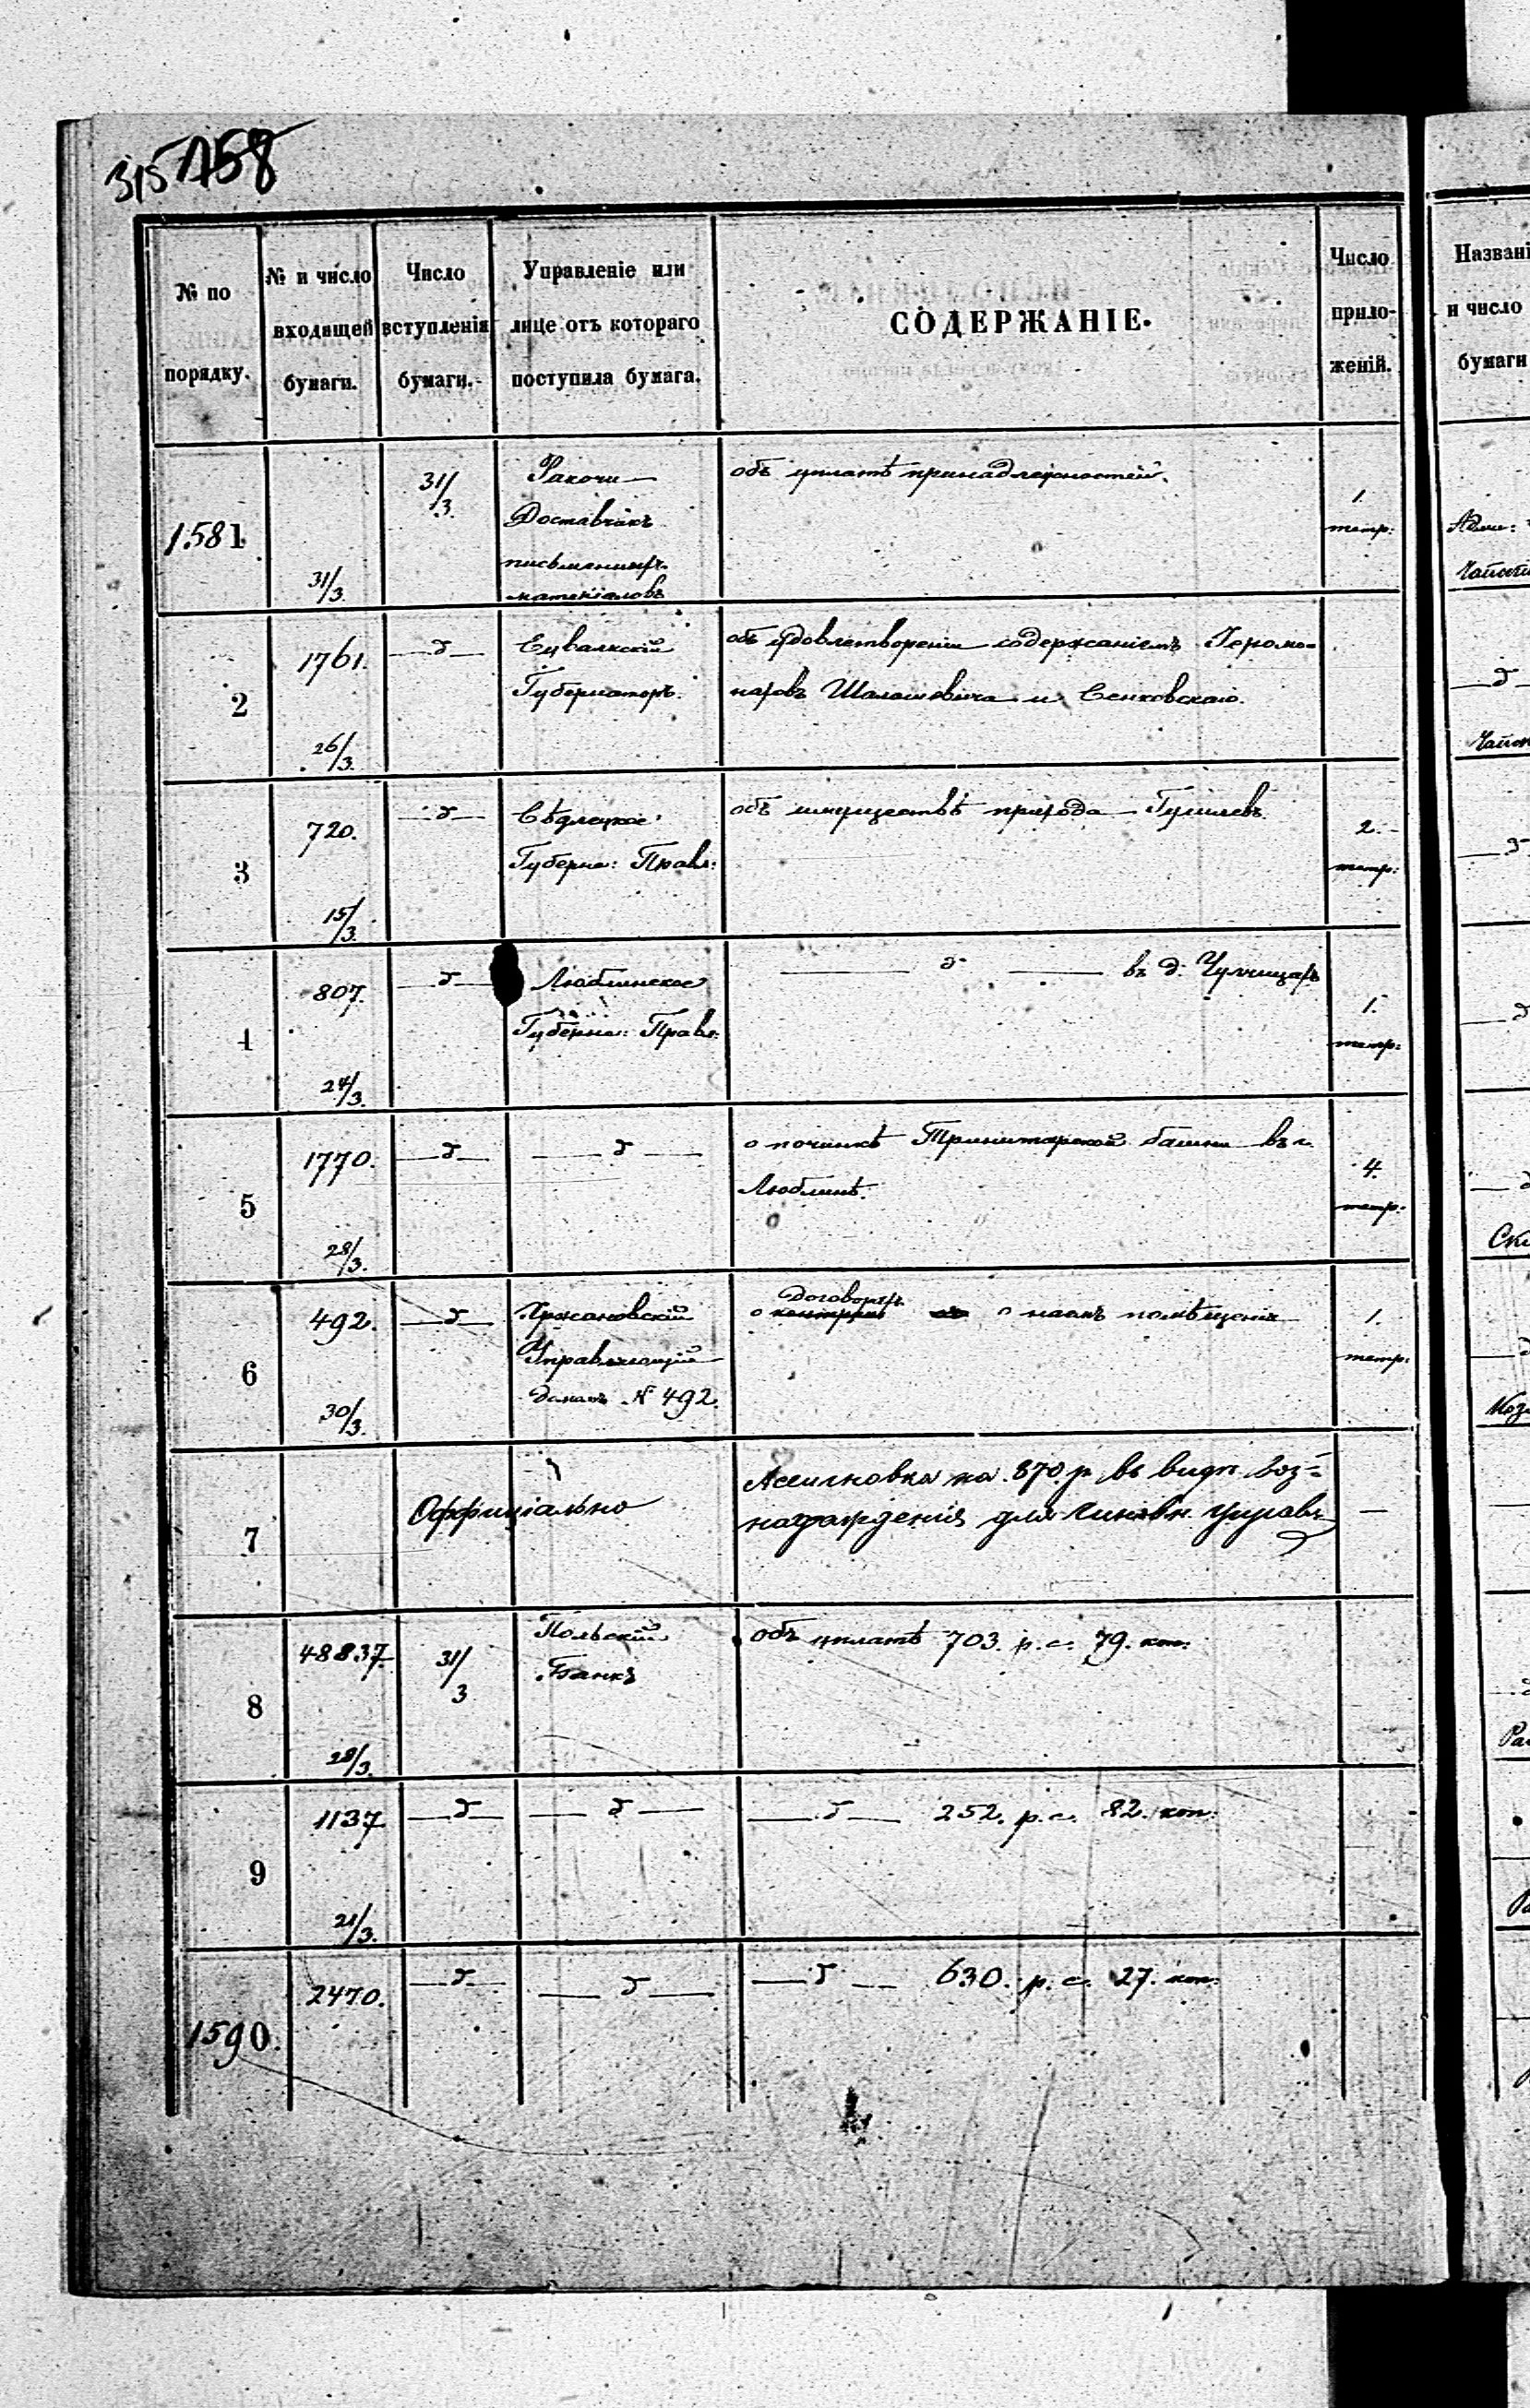 315 158
№ по порядку.
№ и число входящей бумаги.
Число вступленія бумаги.
Управленіе или лице отъ котораго поступила бумага.
СОДЕРЖАНІЕ.
Число прило-женій.
Названі
и число
бумаги
1581
31/3
31/3
Ракочи
Доставчикъ
письменныхъ
матеріаловъ
объ уплатѣ принадлежностей.
1.
тетр:
2
1761.
26/3.
—д—
Сувалкскій
Губернаторъ.
объ удовлетвореніи содержаніемъ Іеромо=
наховъ и Сенковскаго.
3
720.
15/3.
—д—
Сѣдлецкое
Губерн: Правл:
объ имуществѣ прихода
2.
тетр:
4
807.
24/3.
—д—
Люблинское
Губерн: Правл:
— д — въ д.
1.
тетр:
5
1770.
28/3.
—д—
—д—
о починкѣ Тринитарской башни въ г.
Люблинѣ.
4.
тетр:
6
492.
30/3.
—д—
Хржановскій
Управляющій
домомъ № 492.
договорахъ
о о наемъ помѣщенія
1.
тетр:
7
Оффиціально
Ассигновка на 870 р въ видѣ воз=
награжденія для чиновн. управ
—
8
48837.
28/3.
31/3
Польскій
Банкъ
объ уплатѣ 703. р. с. 79. коп:
9
1137
21/3.
—д—
—д—
—д— 252. р. с. 82. коп:
1590.
2470.
—д—
—д—
—д— 630. р. с. 27. коп: